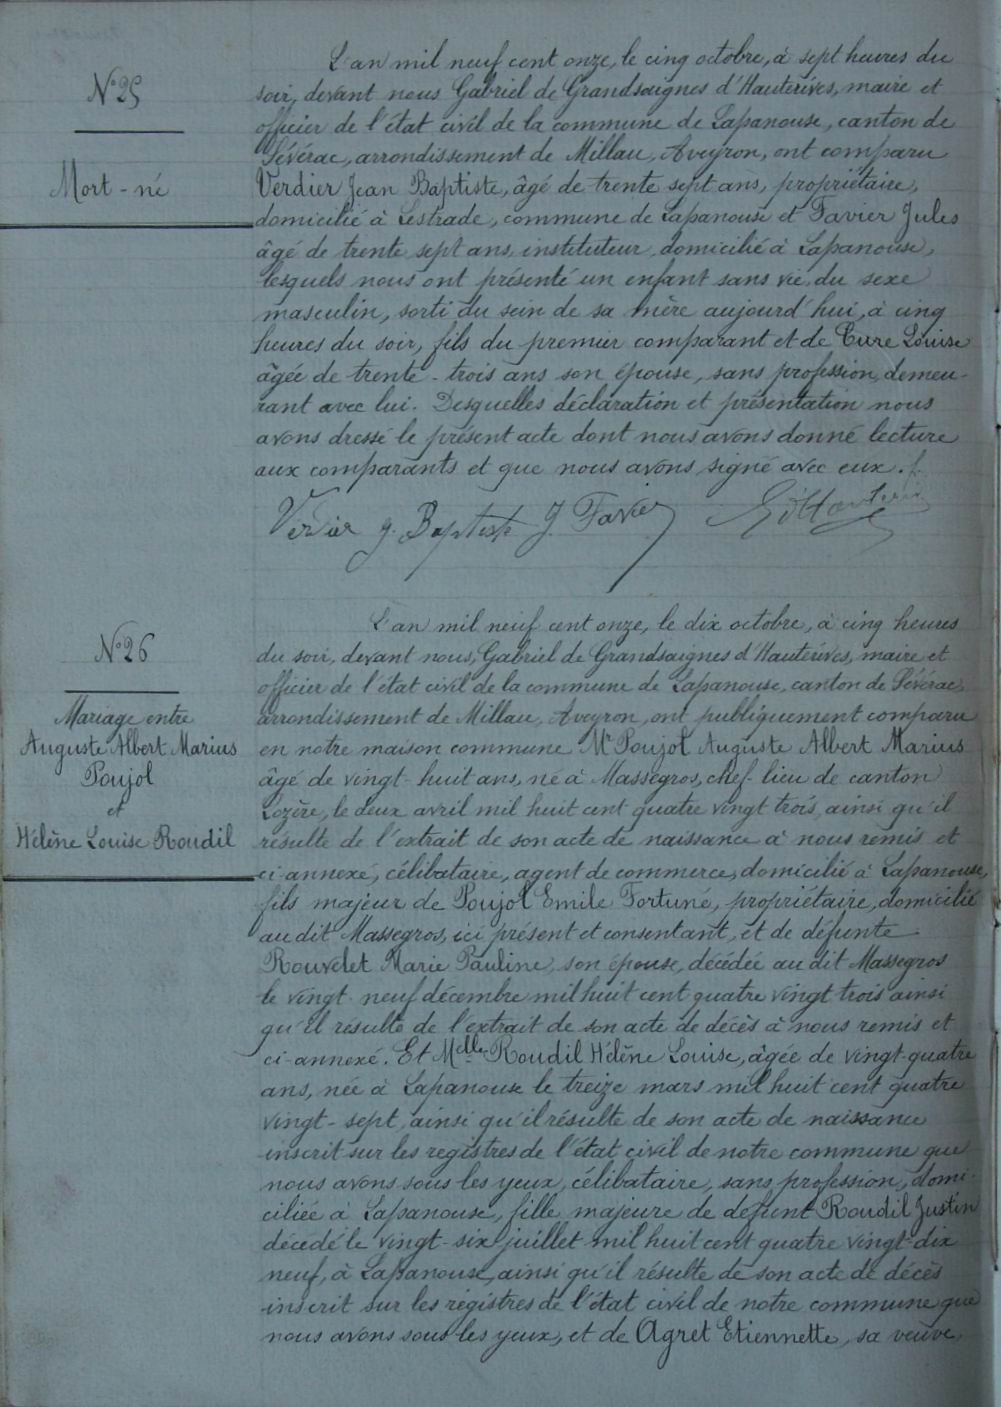 N° 25
Mort-né
L'an mil neuf cent onze, le cinq octobre, à sept heures du
soir, devant nous Gabriel de Grandsaignes d'Hauterives, maire et
officier de l'état civil de la commune de Lapanouse, canton de
Sévérac, arrondissement de Millau, Aveyron, ont comparu
Verdier Jean Baptiste, âgé de trente sept ans, propriétaire,
domicilié à Lestrade, commune de Lapanouse et Favier Jules
âgé de trente sept ans, instituteur, domicilié à Lapanouse,
lesquels nous ont présenté un enfant sans vie, du sexe
masculin, sorti du sein de sa mère aujourd'hui, à cinq
heures du soir, fils du premier comparant et de Cure Louise
âgée de trente-trois ans son épouse, sans profession, demeu-
rant avec lui. Desquelles déclaration et présentation nous
avons dressé le présent acte dont nous avons donné lecture
aux comparants et que nous avons signé avec eux.
Verdier J. Baptiste J. Favier G d'Hauterives
N° 26
Mariage entre
Auguste Albert Marius
Poujol
et
Hélène Louise Roudil
L'an mil neuf cent onze, le dix octobre, à cinq heures
du soir, devant nous, Gabriel de Grandsaignes d'Hauterives, maire et
officier de l'état civil de la commune de Lapanouse, canton de Sévérac,
arrondissement de Millau, Aveyron, ont publiquement comparu
en notre maison commune Mr Poujol Auguste Albert Marius
âgé de vingt-huit ans, né à Massegros, chef-lieu de canton
Lozère, le deux avril mil huit cent quatre vingt trois, ainsi qu'il
résulte de l'extrait de son acte de naissance à nous remis et
ci-annexé, célibataire, agent de commerce, domicilié à Lapanouse,
fils majeur de Poujol Emile Fortuné, propriétaire, domicilié
au dit Massegros, ici présent et consentant, et de défunte
Rouvelet Marie Pauline, son épouse, décédée au dit Massegros
le vingt-neuf décembre mil huit cent quatre vingt trois ainsi
qu'il résulte de l'extrait de son acte de décès à nous remis et
ci-annexé. Et Melle Roudil Hélène Louise, âgée de vingt-quatre
ans, née à Lapanouse le treize mars mil huit cent quatre
vingt-sept, ainsi qu'il résulte de son acte de naissance
inscrit sur les registres de l'état civil de notre commune que
nous avons sous les yeux, célibataire, sans profession, domi-
ciliée à Lapanouse, fille majeure de défunt Roudil Justin
décédé le vingt-six juillet mil huit cent quatre vingt-dix
neuf, à Lapanouse, ainsi qu'il résulte de son acte de décès
inscrit sur les régistres de l'état civil de notre commune que
nous avons sous les yeux, et de Agret Etiennette, sa veuve,